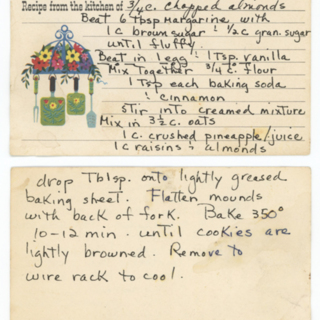 Recipe from the kitchen of 3/4 c. chopped almonds
Beat 6 Tbsp margarine with
1 c brown sugar & 1/2 c gran. sugar
until fluffy.
Beat in 1 egg & 1 Tsp. vanilla
Mix together 3/4 c. flour
1 Tsp each baking soda
& cinnamon
Stir into creamed mixture
Mix in 3 1/2 c. oats
1 c. crushed pineapple/juice
1 c raisins & almonds
drop Tblsp. onto lightly greased
baking sheet. Flatten mounds
with back of fork. Bake 350°
10-12 min. until cookies are
lightly browned. Remove to
wire rack to cool.